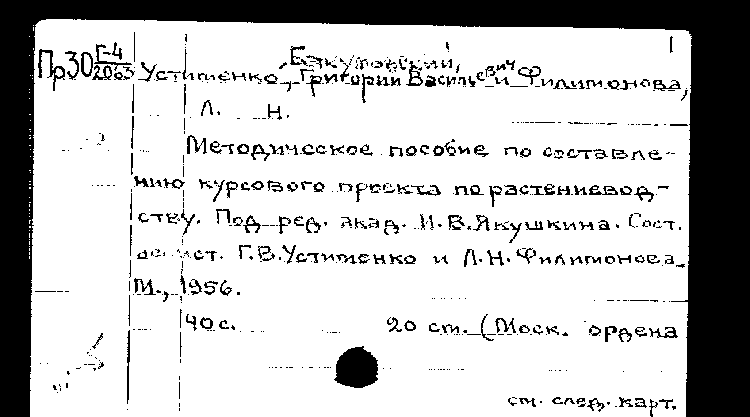 1
Бакумовский,
Пр30 Г-4
2063 Устименко, Григорий Васильевич и Филимонова,
Л. Н.
Методическое пособие по составле-
нию курсового проекта по растениевод-
ству. Под ред. акад. И.В.Якушкина. Сост.
Г.В.Устименко и Л.Н.Филимонова.
М., 1956.
40 с. 20 см. (Моск. ордена
см. след. карт.